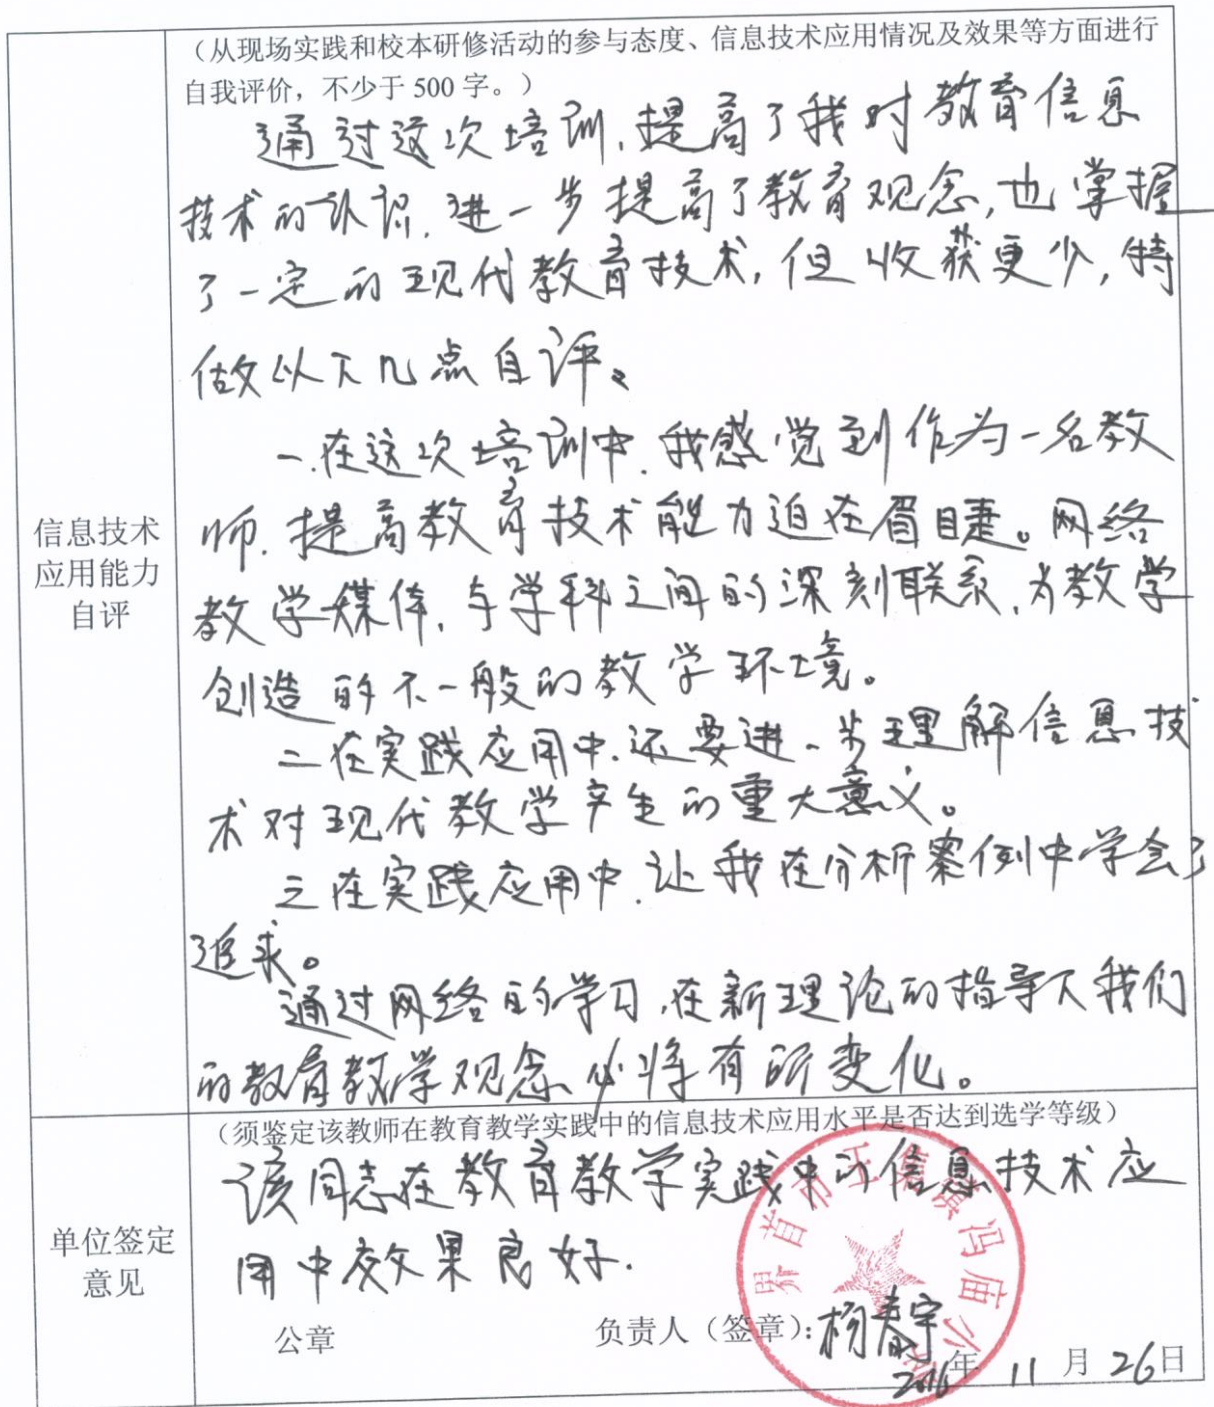 （从现场实践和校本研修活动的参与态度、信息技术应用情况及效果等方面进行
自我评价，不少于 500 字。）
通过这次培训，提高了我对教育信息
技术的认识，进一步提高了教育观念，也掌握
了一定的现代教育技术，但收获更少，特
做以下几点自评。
一.在这次培训中，我感觉到作为一名教
师，提高教育技术能力迫在眉睫。网络
教学媒体，与学科之间的深刻联系，为教学
创造的不一般的教学环境。
二在实践应用中，还要进一步理解信息技
术对现代教学产生的重大意义。
三在实践应用中，让我在分析案例中学会了
追求。
通过网络的学习，在新理论的指导下我们
的教育教学观念必将有所变化。
信息技术
应用能力
自评
（须鉴定该教师在教育教学实践中的信息技术应用水平是否达到选学等级）
该同志在教育教学实践中的信息技术应
用中效果良好.
单位签定
意见
公章 负责人（签章）：杨春宇
2016年 11 月 26日
界首市王集镇冯庙小学